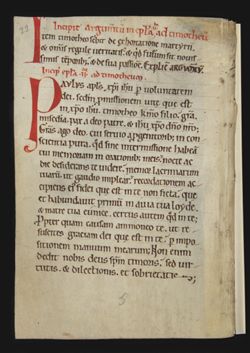 Incipit argumtu in epla ad timotheu
Item timotheo scribit de exhortatione martyrii
et omnis regule veritatis. et qd futurum sit novis
simis temporib; et de sua passione. Explic argumtu.
Incip epla ad timotheum.
Paulus apls xpi ihu p voluntatem
dei. scdm pmissionem vite que est
in xpo ihu. timotheo kmo filio. gra.
misedia. pax a deo patre. et xpo ihu dno nro.
Gras ago deo. cui servio a pgenitorib; in con
scientia pura. qd sine intermissione habea
tui memoriam in orationib; meis. nocte ac
die desiderans te videre. memor lacrimarum
tuaru. ut gaudio implear. recordationem ac
cipiens ei fidei que est in te non ficta. que
et habitavit primu in avia tua loyde.
et matre tua eunice. certus autem qd in te;
Propter quam causam ammoneo te. ut re
suscites gratiam dei que est in te. p impo
sitionem manuum mearum; Non enim
dedit nobis deus spm timoris. sed vir
tutis. et dilectionis. et sobrietatis